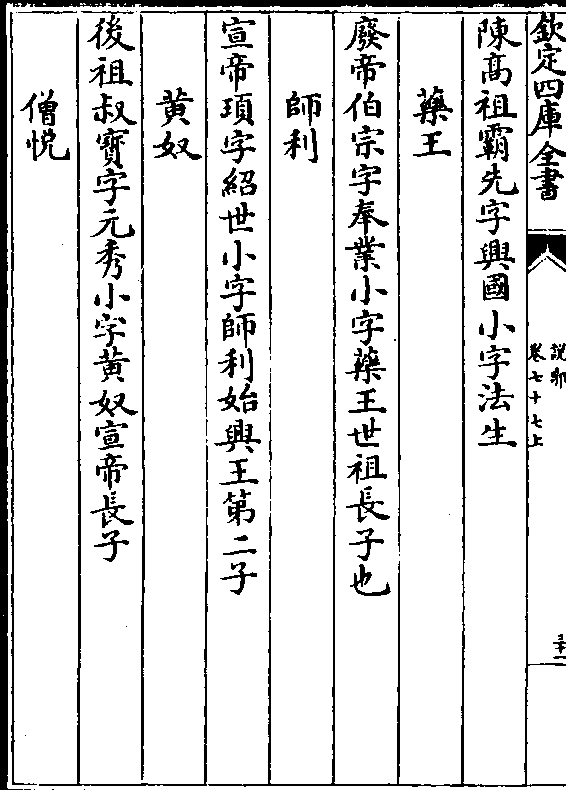 欽定四庫全書
說郛
卷七十七上
陳高祖霸先字興國小字法生
藥王
廢帝伯宗字奉業小字藥王世祖長子也
師利
宣帝頊字紹世小字師利始興王第二子
黄奴
後祖叔寳字元秀小字黄奴宣帝長子
僧悅